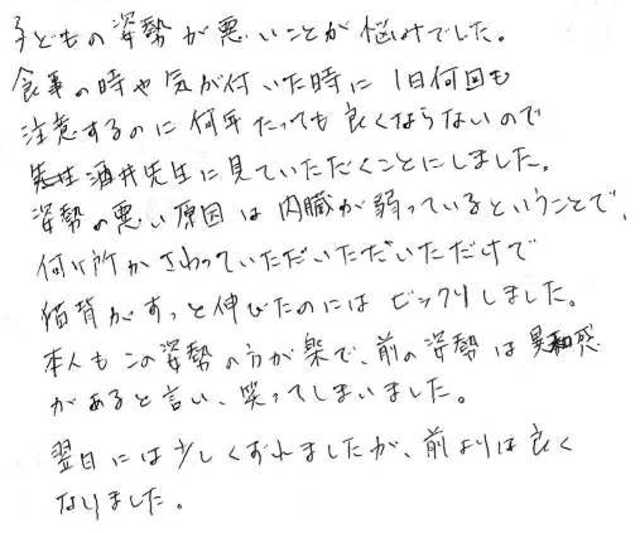 子どもの姿勢が悪いことが悩みでした。
食事の時や気が付いた時に1日何回も
注意するのに何年たっても良くならないので
酒井先生に見ていただくことにしました。
姿勢の悪い原因は内臓が弱っているということで、
何ヶ所かさわっていただいただいただけで
猫背がすっと伸びたのにはビックリしました。
本人もこの姿勢の方が楽で、前の姿勢は異和感
があると言い、笑ってしまいました。
翌日には少しくずれましたが、前よりは良く
なりました。